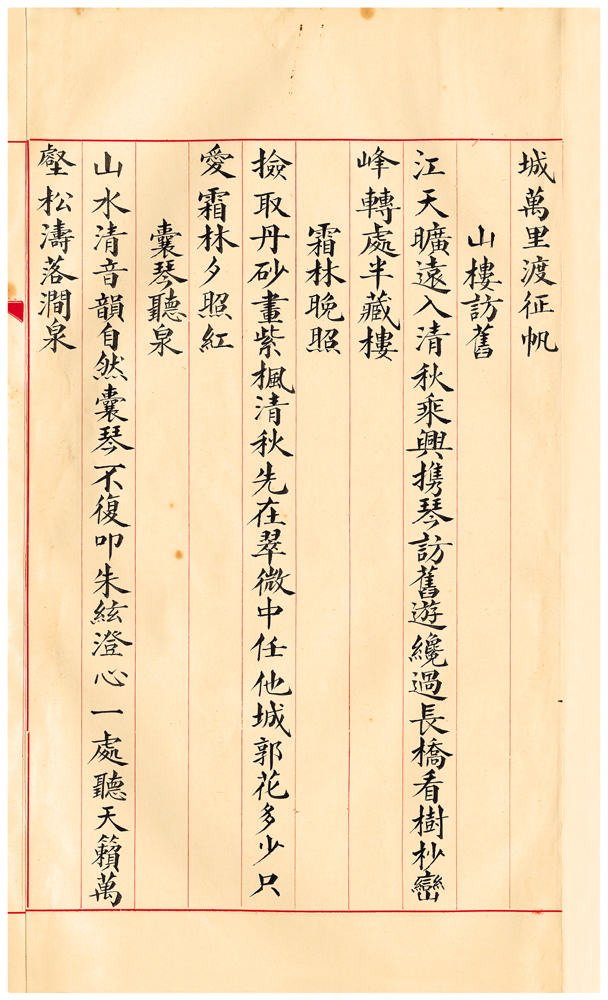 城萬里渡征帆
山樓訪舊
江天曠遠入清秋乘興攜琴訪舊遊纔過長橋看樹杪巒
峰轉處半藏樓
霜林晚照
撿取丹砂畫紫楓清秋先在翠微中任他城郭花多少只
愛霜林夕照紅
囊琴聽泉
山水清音韻自然囊琴不復叩朱絃澄心一處聽天籟萬
壑松濤落澗泉